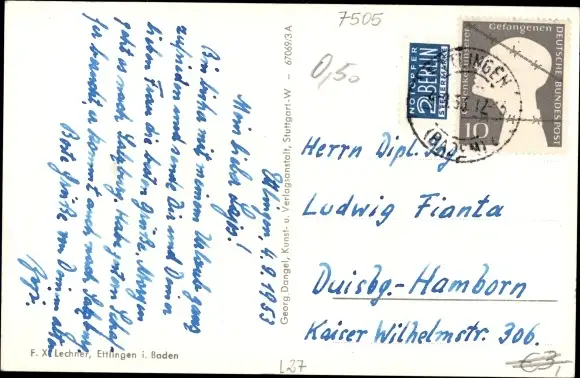 7505
0,50
Ettlingen, 4.9.1953
Mein lieber Kaps!
Bin bisher mit meinem Urlaub ganz
zufrieden und sende Dir und Deiner
lieben Frau die besten Grüße. Morgen
geht es nach Salzburg.
kommt auch nach
Beste Grüße von Deinem alten
67069/3 A
Georg Dangel, Kunst- u. Verlagsanstalt, Stuttgart-W
F. X. Lechner, Ettlingen i. Baden
NOTOPFER
2 BERLIN
STEUERMARKE
Gedenket unserer
Gefangenen
DEUTSCHE BUNDESPOST
10
(BADEN)
Herrn Dipl. Ing.
Ludwig Fianta
Duisbg.-Hamborn
Kaiser Wilhelmstr. 306.
L27
€3,